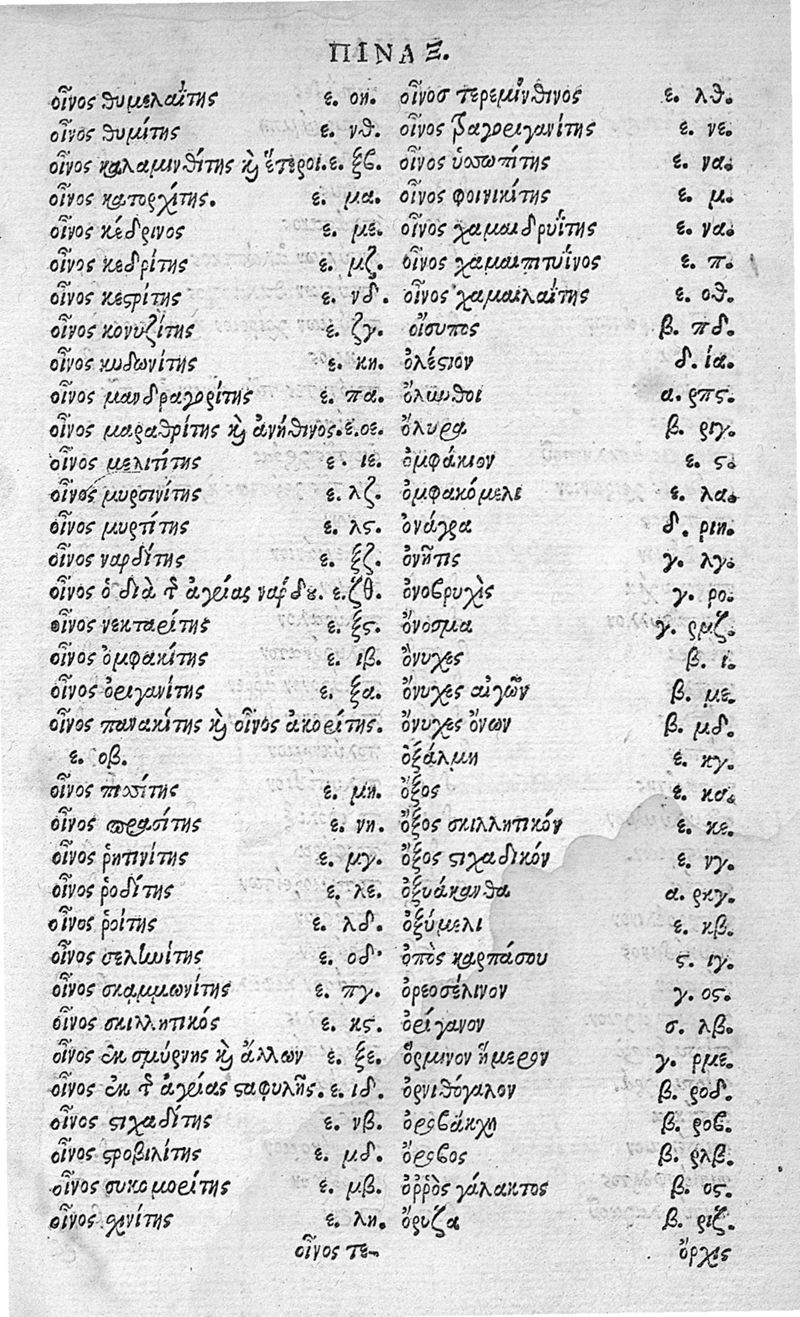 ΠΙΝΑΞ.
οἶνος θυμελαΐτης ε. οη.
οἶνος θυμίτης ε. νθ.
οἶνος καλαμινθίτης καὶ ἕτεροι. ε. ξβ.
οἶνος κατορχίτης. ε. μα.
οἶνος κέδρινος ε. με.
οἶνος κεδρίτης ε. μζ.
οἶνος κεστρίτης ε. νδ.
οἶνος κονυζίτης ε. ζγ.
οἶνος κυδωνίτης ε. κη.
οἶνος μανδραγορίτης ε. πα.
οἶνος μαραθρίτης καὶ ἀνήθινος. ε. οε.
οἶνος μελιτίτης ε. ιε.
οἶνος μυρσινίτης ε. λζ.
οἶνος μυρτίτης ε. λς.
οἶνος ναρδίτης ε. ξζ.
οἶνος ὁ διὰ τῆς ἀγρίας νάρδου. ε. ζθ.
οἶνος νεκταρίτης ε. ξς.
οἶνος ὀμφακίτης ε. ιβ.
οἶνος ὀριγανίτης ε. ξα.
οἶνος πανακίτης καὶ οἶνος ἀκορίτης.
ε. οβ.
οἶνος πισσίτης ε. μη.
οἶνος πρασίτης ε. νη.
οἶνος ῥητινίτης ε. μγ.
οἶνος ῥοδίτης ε. λε.
οἶνος ῥοίτης ε. λδ.
οἶνος σελινίτης ε. οδ.
οἶνος σκαμμωνίτης ε. πγ.
οἶνος σκιλλητικός ε. κς.
οἶνος ἐκ σμύρνης καὶ ἄλλων ε. ξε.
οἶνος ἐκ τῆς ἀγρίας σταφυλῆς. ε. ιδ.
οἶνος στιχαδίτης ε. νβ.
οἶνος στροβιλίτης ε. μδ.
οἶνος συκομορίτης ε. μβ.
οἶνος σχινίτης ε. λη.
οἶνος τε-
οἶνοσ τερεμίνθινος ε. λθ.
οἶνος τραγοριγανίτης ε. νε.
οἶνος ὑσσωπίτης ε. να.
οἶνος φοινικίτης ε. μ.
οἶνος χαμαιδρυΐτης ε. να.
οἶνος χαμαιπιτυίνος ε. π.
οἶνος χαμαιλαΐτης ε. οθ.
οἴσυπος β. πδ.
ὀλέστιον δ. ία.
ὄλυνθοι α. ρπς.
ὄλυρα β. ριγ.
ὀμφάκιον ε. ς.
ὀμφακόμελι ε. λα.
ὀνάγρα δ. ριη.
ὀνῆτις γ. λγ.
ὀνοβρυχὶς γ. ρο.
ὄνοσμα γ. ρμζ.
ὄνυχες β. ι.
ὄνυχες αἰγῶν β. με.
ὄνυχες ὄνων β. μδ.
ὀξάλμη ε. κγ.
ὄξος ε. κα.
ὄξος σκιλλητικόν ε. κε.
ὄξος στιχαδικόν ε. νγ.
ὀξυάκανθα α. ρκγ.
ὀξύμελι ε. κβ.
ὀπὸς καρπάσου ς. ιγ.
ὀρεοσέλινον γ. ος.
ὀρίγανον σ. λβ.
ὅρμινον ἥμερον γ. ρμε.
ὀρνιθόγαλον β. ροδ.
ὀροβάκχη β. ροβ.
ὄροβος β. ρλβ.
ὀῤῥὸς γάλακτος β. ος.
ὄρυζα β. ριζ.
ὄρχις